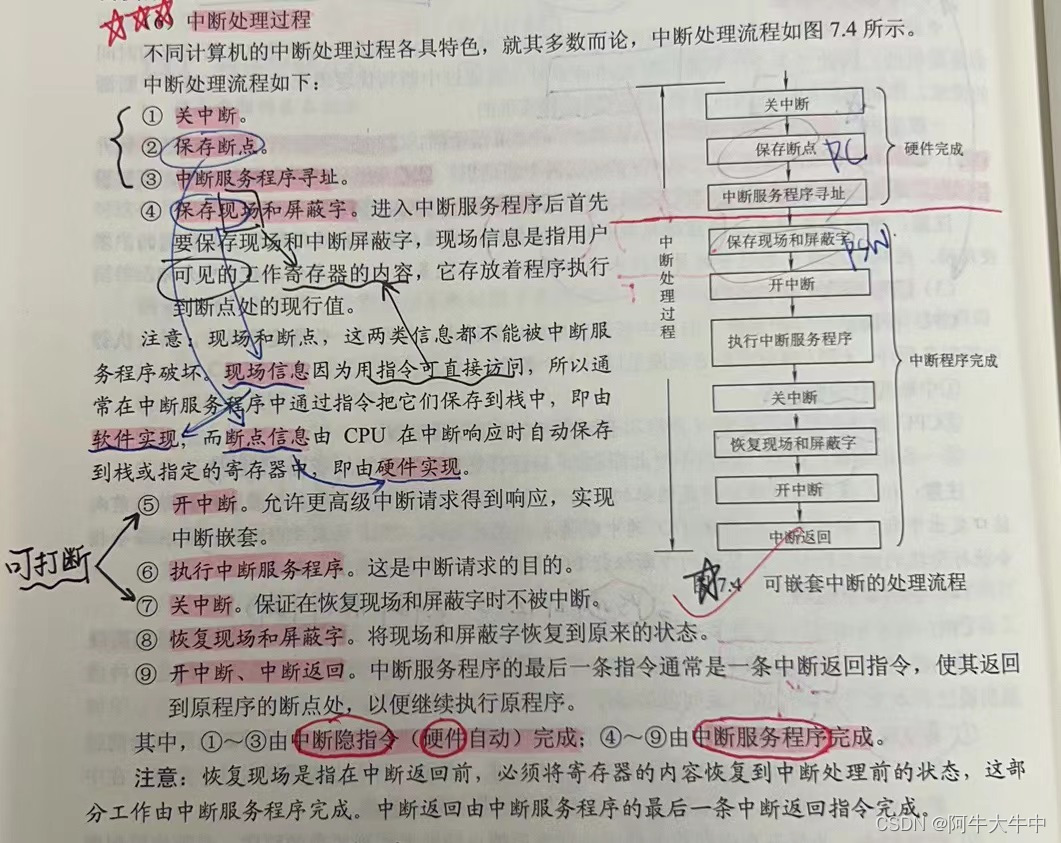 (6) 中断处理过程
不同计算机的中断处理过程各具特色，就其多数而论，中断处理流程如图 7.4 所示。
中断处理流程如下：
① 关中断。
② 保存断点。
③ 中断服务程序寻址。
④ 保存现场和屏蔽字。进入中断服务程序后首先
要保存现场和中断屏蔽字，现场信息是指用户
可见的工作寄存器的内容，它存放着程序执行
到断点处的现行值。
注意：现场和断点，这两类信息都不能被中断服
务程序破坏。现场信息因为用指令可直接访问，所以通
常在中断服务程序中通过指令把它们保存到栈中，即由
软件实现；而断点信息由 CPU 在中断响应时自动保存
到栈或指定的寄存器中，即由硬件实现。
⑤ 开中断。允许更高级中断请求得到响应，实现
中断嵌套。
可打断
⑥ 执行中断服务程序。这是中断请求的目的。
⑦ 关中断。保证在恢复现场和屏蔽字时不被中断。
⑧ 恢复现场和屏蔽字。将现场和屏蔽字恢复到原来的状态。
⑨ 开中断、中断返回。中断服务程序的最后一条指令通常是一条中断返回指令，使其返回
到原程序的断点处，以便继续执行原程序。
其中，①～③由中断隐指令（硬件自动）完成；④～⑨由中断服务程序完成。
注意：恢复现场是指在中断返回前，必须将寄存器的内容恢复到中断处理前的状态，这部
分工作由中断服务程序完成。中断返回由中断服务程序的最后一条中断返回指令完成。
中断处理过程
关中断
保存断点 PC
中断服务程序寻址
硬件完成
保存现场和屏蔽字 PSW
开中断
执行中断服务程序
关中断
恢复现场和屏蔽字
开中断
中断返回
中断程序完成
7.4 可嵌套中断的处理流程
CSDN @阿牛大牛中